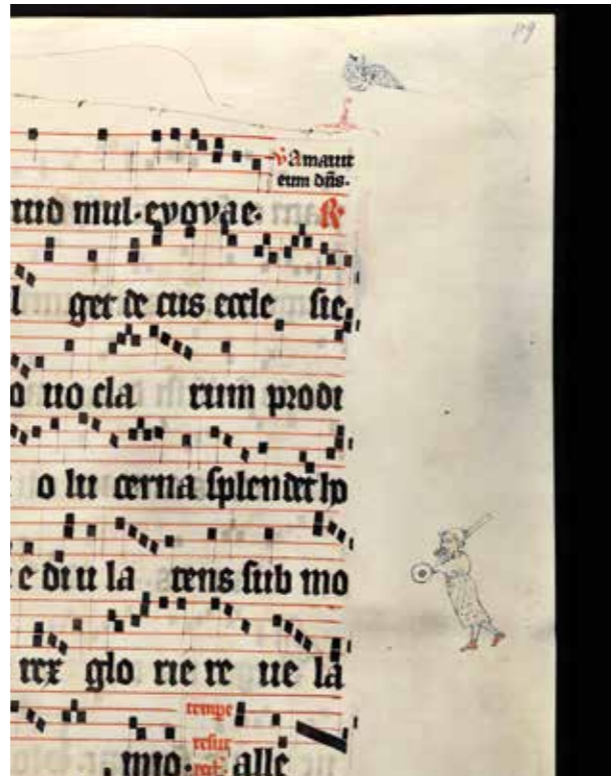 89
V Amavit
eum dñs.
mul·evovae· R
get de cus eccle sie
uo cla rum prodi
o lu cerna splendet ho
e diu la tens sub mo
rex glo rie re ue la
tempe
resur
mo· alle